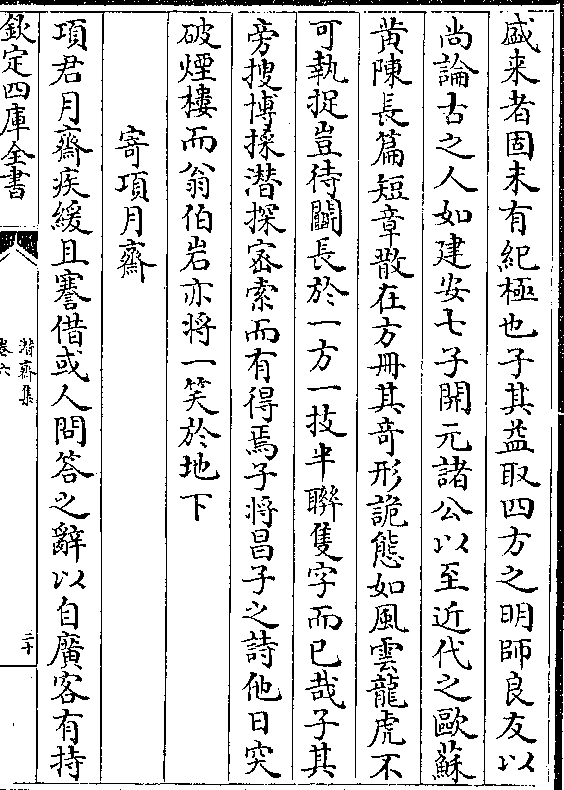 盛来者固未有紀極也子其益取四方之明師良友以
尚論古之人如建安七子開元諸公以至近代之歐蘇
黄陳長篇短章散在方冊其竒形詭態如風雲龍虎不
可執捉豈待鬭長於一方一技半聨隻字而已哉子其
旁搜博採潜探宻索而有得焉子將昌子之詩他日突
破煙樓而翁伯岩亦将一笑於地下
寄項月齋
項君月齋疾緩且蹇借或人問答之辭以自廣客有持
欽定四庫全書
潜齋集
卷六
二十